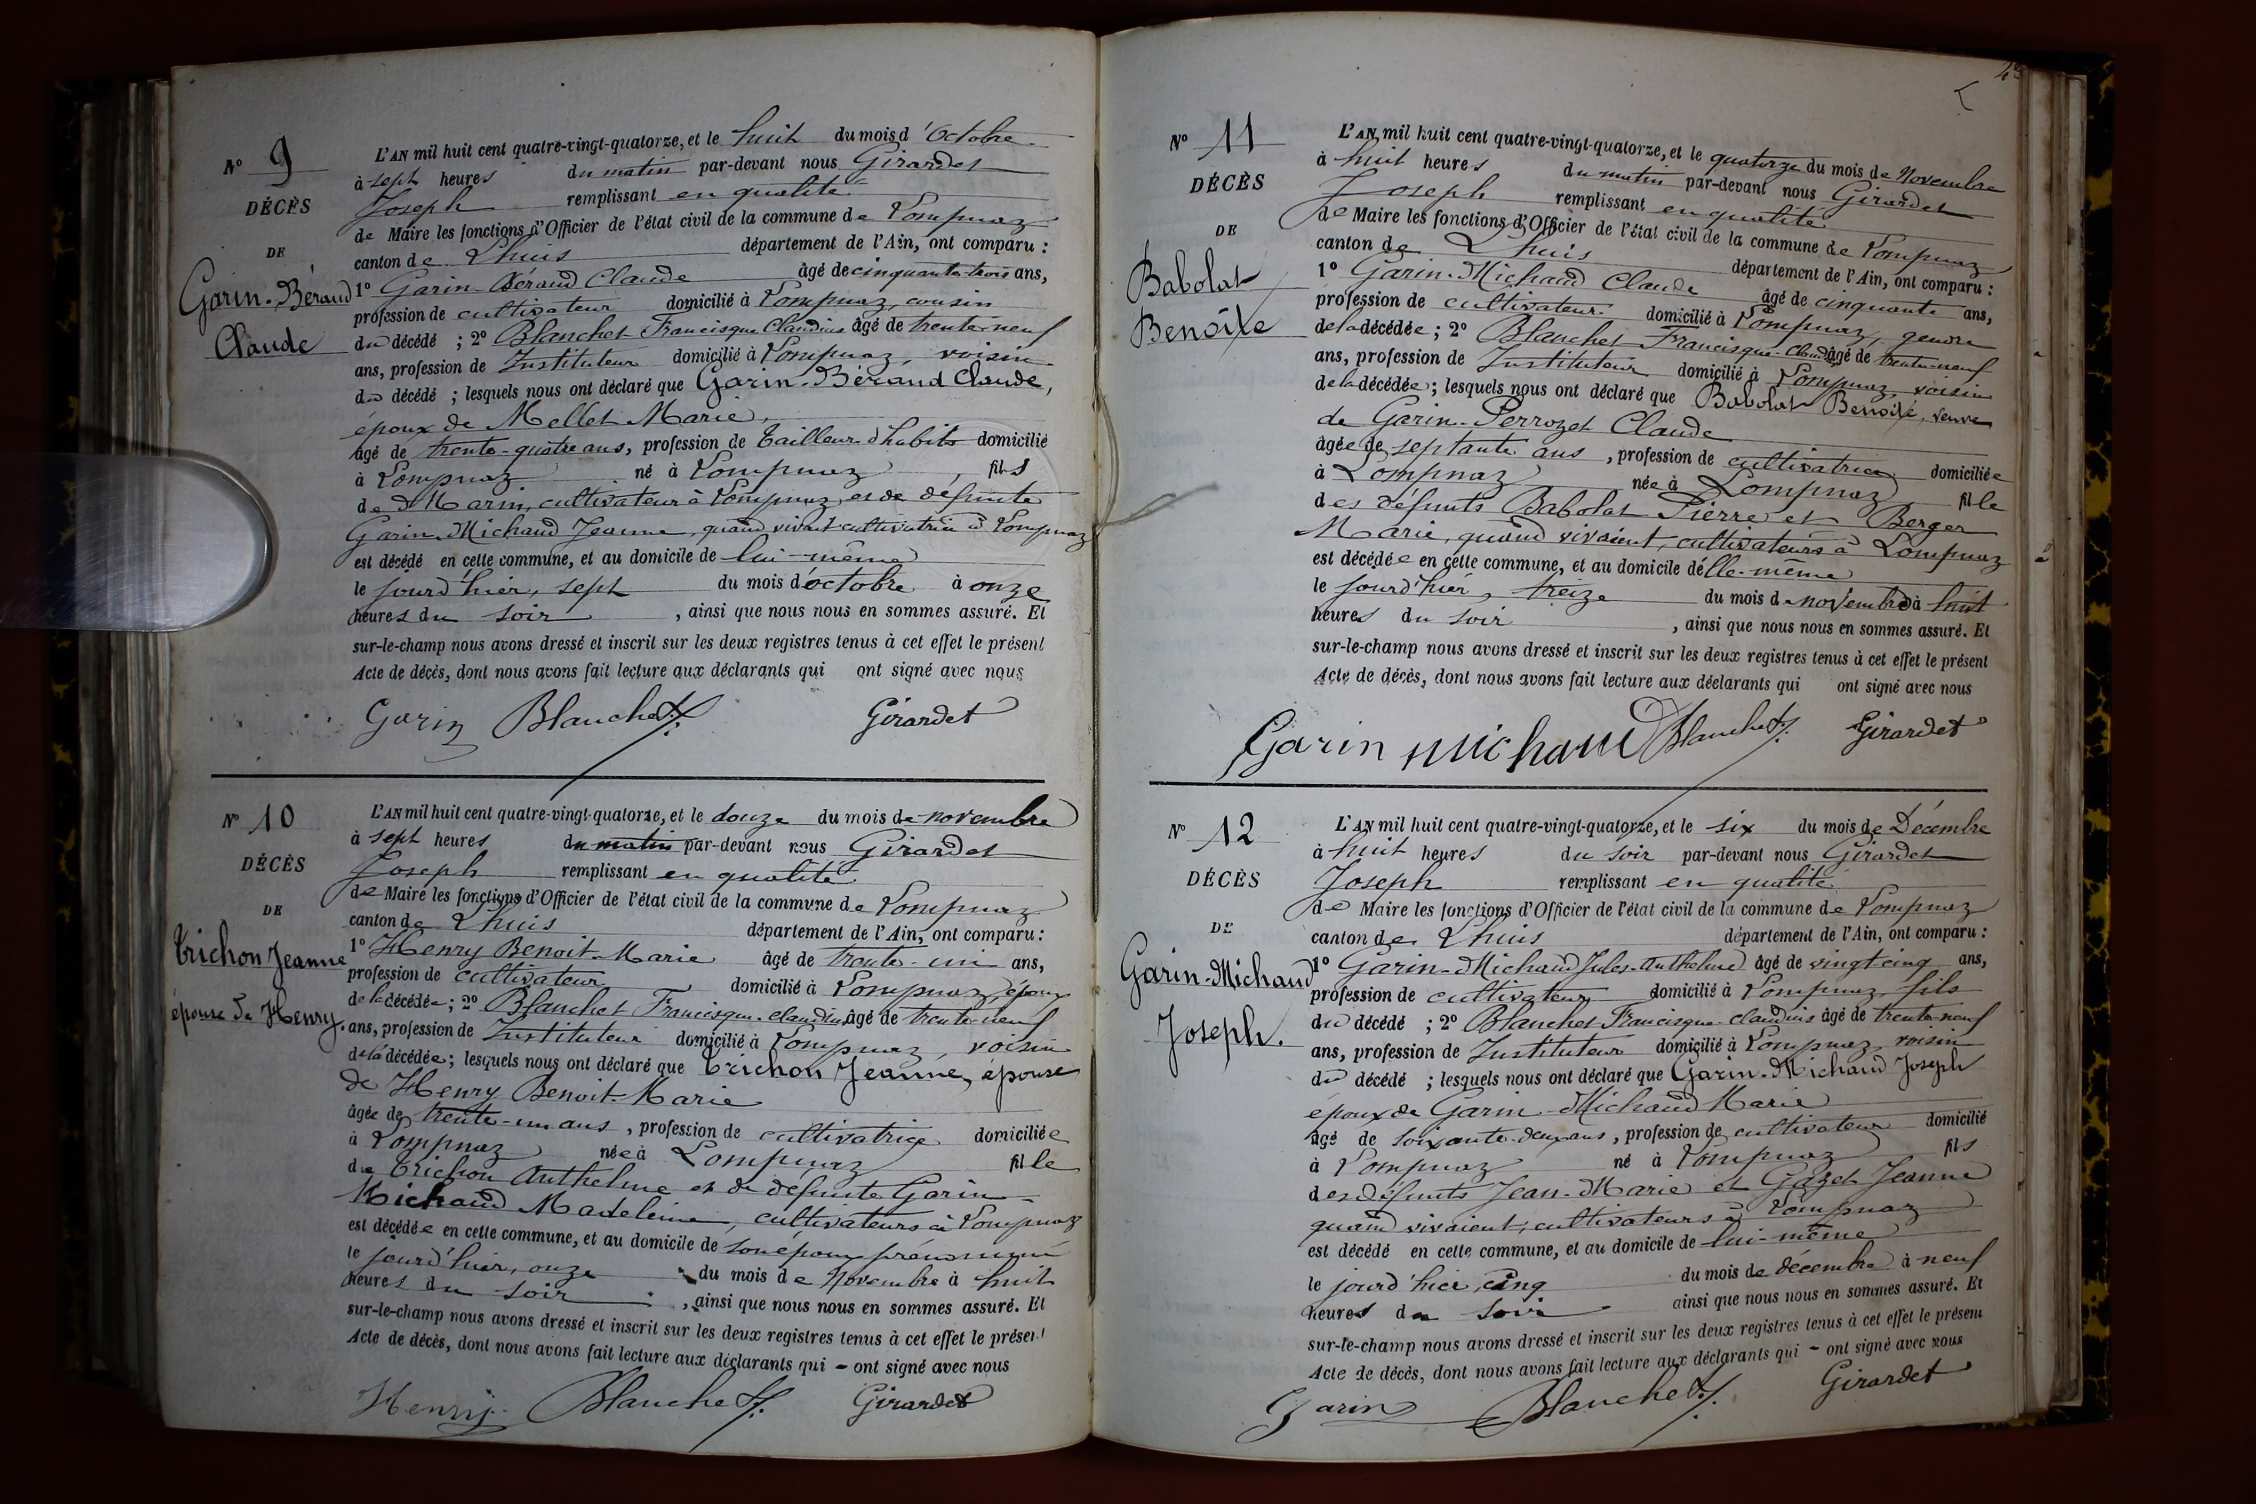 N° 9
DÉCÈS
DE
Garin-Béraud
Claude
L'AN mil huit cent quatre-vingt-quatorze, et le huit du mois d'Octobre
à sept heures du matin par-devant nous Girardet
Joseph remplissant en qualité
de Maire les fonctions d'Officier de l'état civil de la commune de Lompnaz
canton de Lhuis département de l'Ain, ont comparu :
1° Garin-Béraud Claude âgé de cinquante-trois ans,
profession de cultivateur domicilié à Lompnaz, cousin
du décédé ; 2° Blanchet Francisque Claudius âgé de trente-neuf
ans, profession de Instituteur domicilié à Lompnaz, voisin
du décédé ; lesquels nous ont déclaré que Garin-Béraud Claude,
époux de Mellet Marie,
âgé de trente-quatre ans, profession de tailleur d'habits domicilié
à Lompnaz né à Lompnaz, fils
de Marin, cultivateur à Lompnaz et de défunte
Garin-Michaud Jeanne, quand vivait cultivatrice à Lompnaz
est décédé en cette commune, et au domicile de lui-même
le jourd'hier, sept du mois d'octobre à onze
heures du soir, ainsi que nous nous en sommes assuré. Et
sur-le-champ nous avons dressé et inscrit sur les deux registres tenus à cet effet le présent
Acte de décès, dont nous avons fait lecture aux déclarants qui ont signé avec nous
Garin Blanchet Girardet
N° 10
DÉCÈS
DE
Trichon Jeanne
épouse de Henry.
L'AN mil huit cent quatre-vingt-quatorze, et le douze du mois de novembre
à sept heures du matin par-devant nous Girardet
Joseph remplissant en qualité
de Maire les fonctions d'Officier de l'état civil de la commune de Lompnaz
canton de Lhuis département de l'Ain, ont comparu :
1° Henry Benoit-Marie âgé de trente-un ans,
profession de cultivateur domicilié à Lompnaz, époux
de la décédée ; 2° Blanchet Francisque-Claudius âgé de trente-neuf
ans, profession de Instituteur domicilié à Lompnaz, voisin
de la décédée ; lesquels nous ont déclaré que Trichon Jeanne, épouse
de Henry Benoit-Marie
âgée de trente-un ans, profession de cultivatrice domiciliée
à Lompnaz née à Lompnaz fille
de Trichon Anthelme et de défunte Garin-
Michaud Madeleine, cultivateurs à Lompnaz
est décédée en cette commune, et au domicile de son époux prénommé
le jourd'hier, onze du mois de Novembre à huit
heures du soir, ainsi que nous nous en sommes assuré. Et
sur-le-champ nous avons dressé et inscrit sur les deux registres tenus à cet effet le présent
Acte de décès, dont nous avons fait lecture aux déclarants qui - ont signé avec nous
Henry Blanchet Girardet
N° 11
DÉCÈS
DE
Babolat
Benoîte
L'AN mil huit cent quatre-vingt-quatorze, et le quatorze du mois de Novembre
à huit heures du matin par-devant nous Girardet
Joseph remplissant en qualité
de Maire les fonctions d'Officier de l'état civil de la commune de Lompnaz
canton de Lhuis département de l'Ain, ont comparu :
1° Garin-Michaud Claude âgé de cinquante ans,
profession de cultivateur domicilié à Lompnaz, gendre
de la décédée ; 2° Blanchet Francisque-Claudius âgé de trente-neuf
ans, profession de Instituteur domicilié à Lompnaz, voisin
de la décédée ; lesquels nous ont déclaré que Babolat Benoîte, veuve
de Garin-Perrozet Claude
âgée de septante ans, profession de cultivatrice domiciliée
à Lompnaz née à Lompnaz fille
des défunts Babolat Pierre et Berger
Marie, quand vivaient, cultivateurs à Lompnaz
est décédée en cette commune, et au domicile d'elle-même
le jourd'hier, treize du mois de novembre à huit
heures du soir, ainsi que nous nous en sommes assuré. Et
sur-le-champ nous avons dressé et inscrit sur les deux registres tenus à cet effet le présent
Acte de décès, dont nous avons fait lecture aux déclarants qui ont signé avec nous
Garin michaud Blanchet Girardet
N° 12
DÉCÈS
DE
Garin-Michaud
Joseph.
L'AN mil huit cent quatre-vingt-quatorze, et le six du mois de Décembre
à huit heures du soir par-devant nous Girardet
Joseph remplissant en qualité
de Maire les fonctions d'Officier de l'état civil de la commune de Lompnaz
canton de Lhuis département de l'Ain, ont comparu :
1° Garin-Michaud Jules-Anthelme âgé de vingt cinq ans,
profession de cultivateur domicilié à Lompnaz, fils
du décédé ; 2° Blanchet Francisque-Claudius âgé de trente-neuf
ans, profession de Instituteur domicilié à Lompnaz, voisin
du décédé ; lesquels nous ont déclaré que Garin-Michaud Joseph
époux de Garin-Michaud Marie
âgé de soixante-deux ans, profession de cultivateur domicilié
à Lompnaz né à Lompnaz fils
des défunts Jean-Marie et Gazet Jeanne
quand vivaient, cultivateurs à Lompnaz
est décédé en cette commune, et au domicile de lui-même
le jourd'hier, cinq du mois de décembre à neuf
heures du soir ainsi que nous nous en sommes assuré. Et
sur-le-champ nous avons dressé et inscrit sur les deux registres tenus à cet effet le présent
Acte de décès, dont nous avons fait lecture aux déclarants qui - ont signé avec nous
Garin Blanchet Girardet